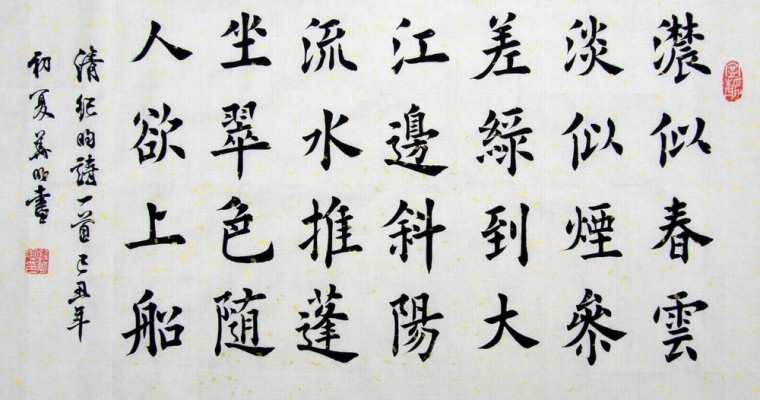 濃似春雲
淡似煙參
差綠到大
江邊斜陽
流水推蓬
坐翠色随
人欲上船
清紀昀詩一首己丑年
初夏書